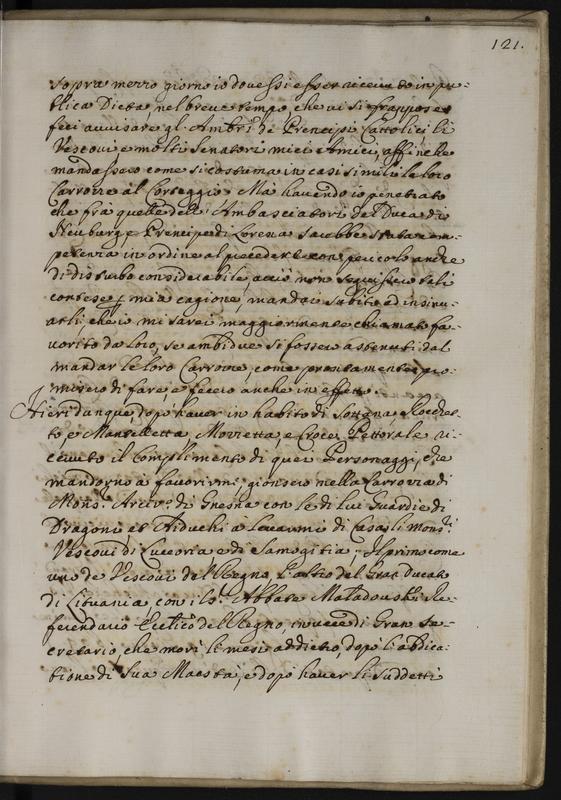 121.
sopra mezzo giorno io dovessi esser ricevuto in pu-
blica Dieta, nel breve tempo, che vi si frappose
feci avvisare gl' Ambri. de Prencipi Cattolici li
Vescovi e molti Senatori miei Amici, affinche
mandassero come si costuma in casi simili le loro
Carrozze al Corteggio. Ma havendo io penetrato
che frà quelle delli Ambasciatori del Duca di
Neuburg, e Prencipe di Lorena sarebbe stata com-
petenza in ordine al precedere con pericolo anche
di disturbo considerabile, acciò non seguissero tali
contese p mia cagione, mandai subito ad insinu-
arli, che io mi sarei maggiormente chiamato fa-
vorito da loro, se ambidue si fossero astenuti dal
mandar le loro Carrozze, come prontamente pro-
misero di fare, e fecero anche in effetto.
Hieri dunque, dopò haver in habito di Sottana, Rocchet-
to, e Mantelletta, Mozzetta, e Croce Pettorale ri-
cevuto il Complimento di quei Personaggi, che
mandorno à favorirmi, gionsero nella Carrozza di
Mons.r Arciv.o di Gnesna con le di lui Guardie di
Dragoni, et Aiduchi à levarmi di Casa li Mons.ri
Vescovi di Luceoria e di Samogitia. Il primo come
uno de Vescovi del Regno, l'altro del Gran Ducato
di Lituania con il S.r Abbate Maladouski Re-
ferendario Eccl.co del Regno, in vece di Gran Se-
cretario, che morì li mesi addietro, dopò l'abdica-
tione di Sua Maestà, e dopò haver li suddetti